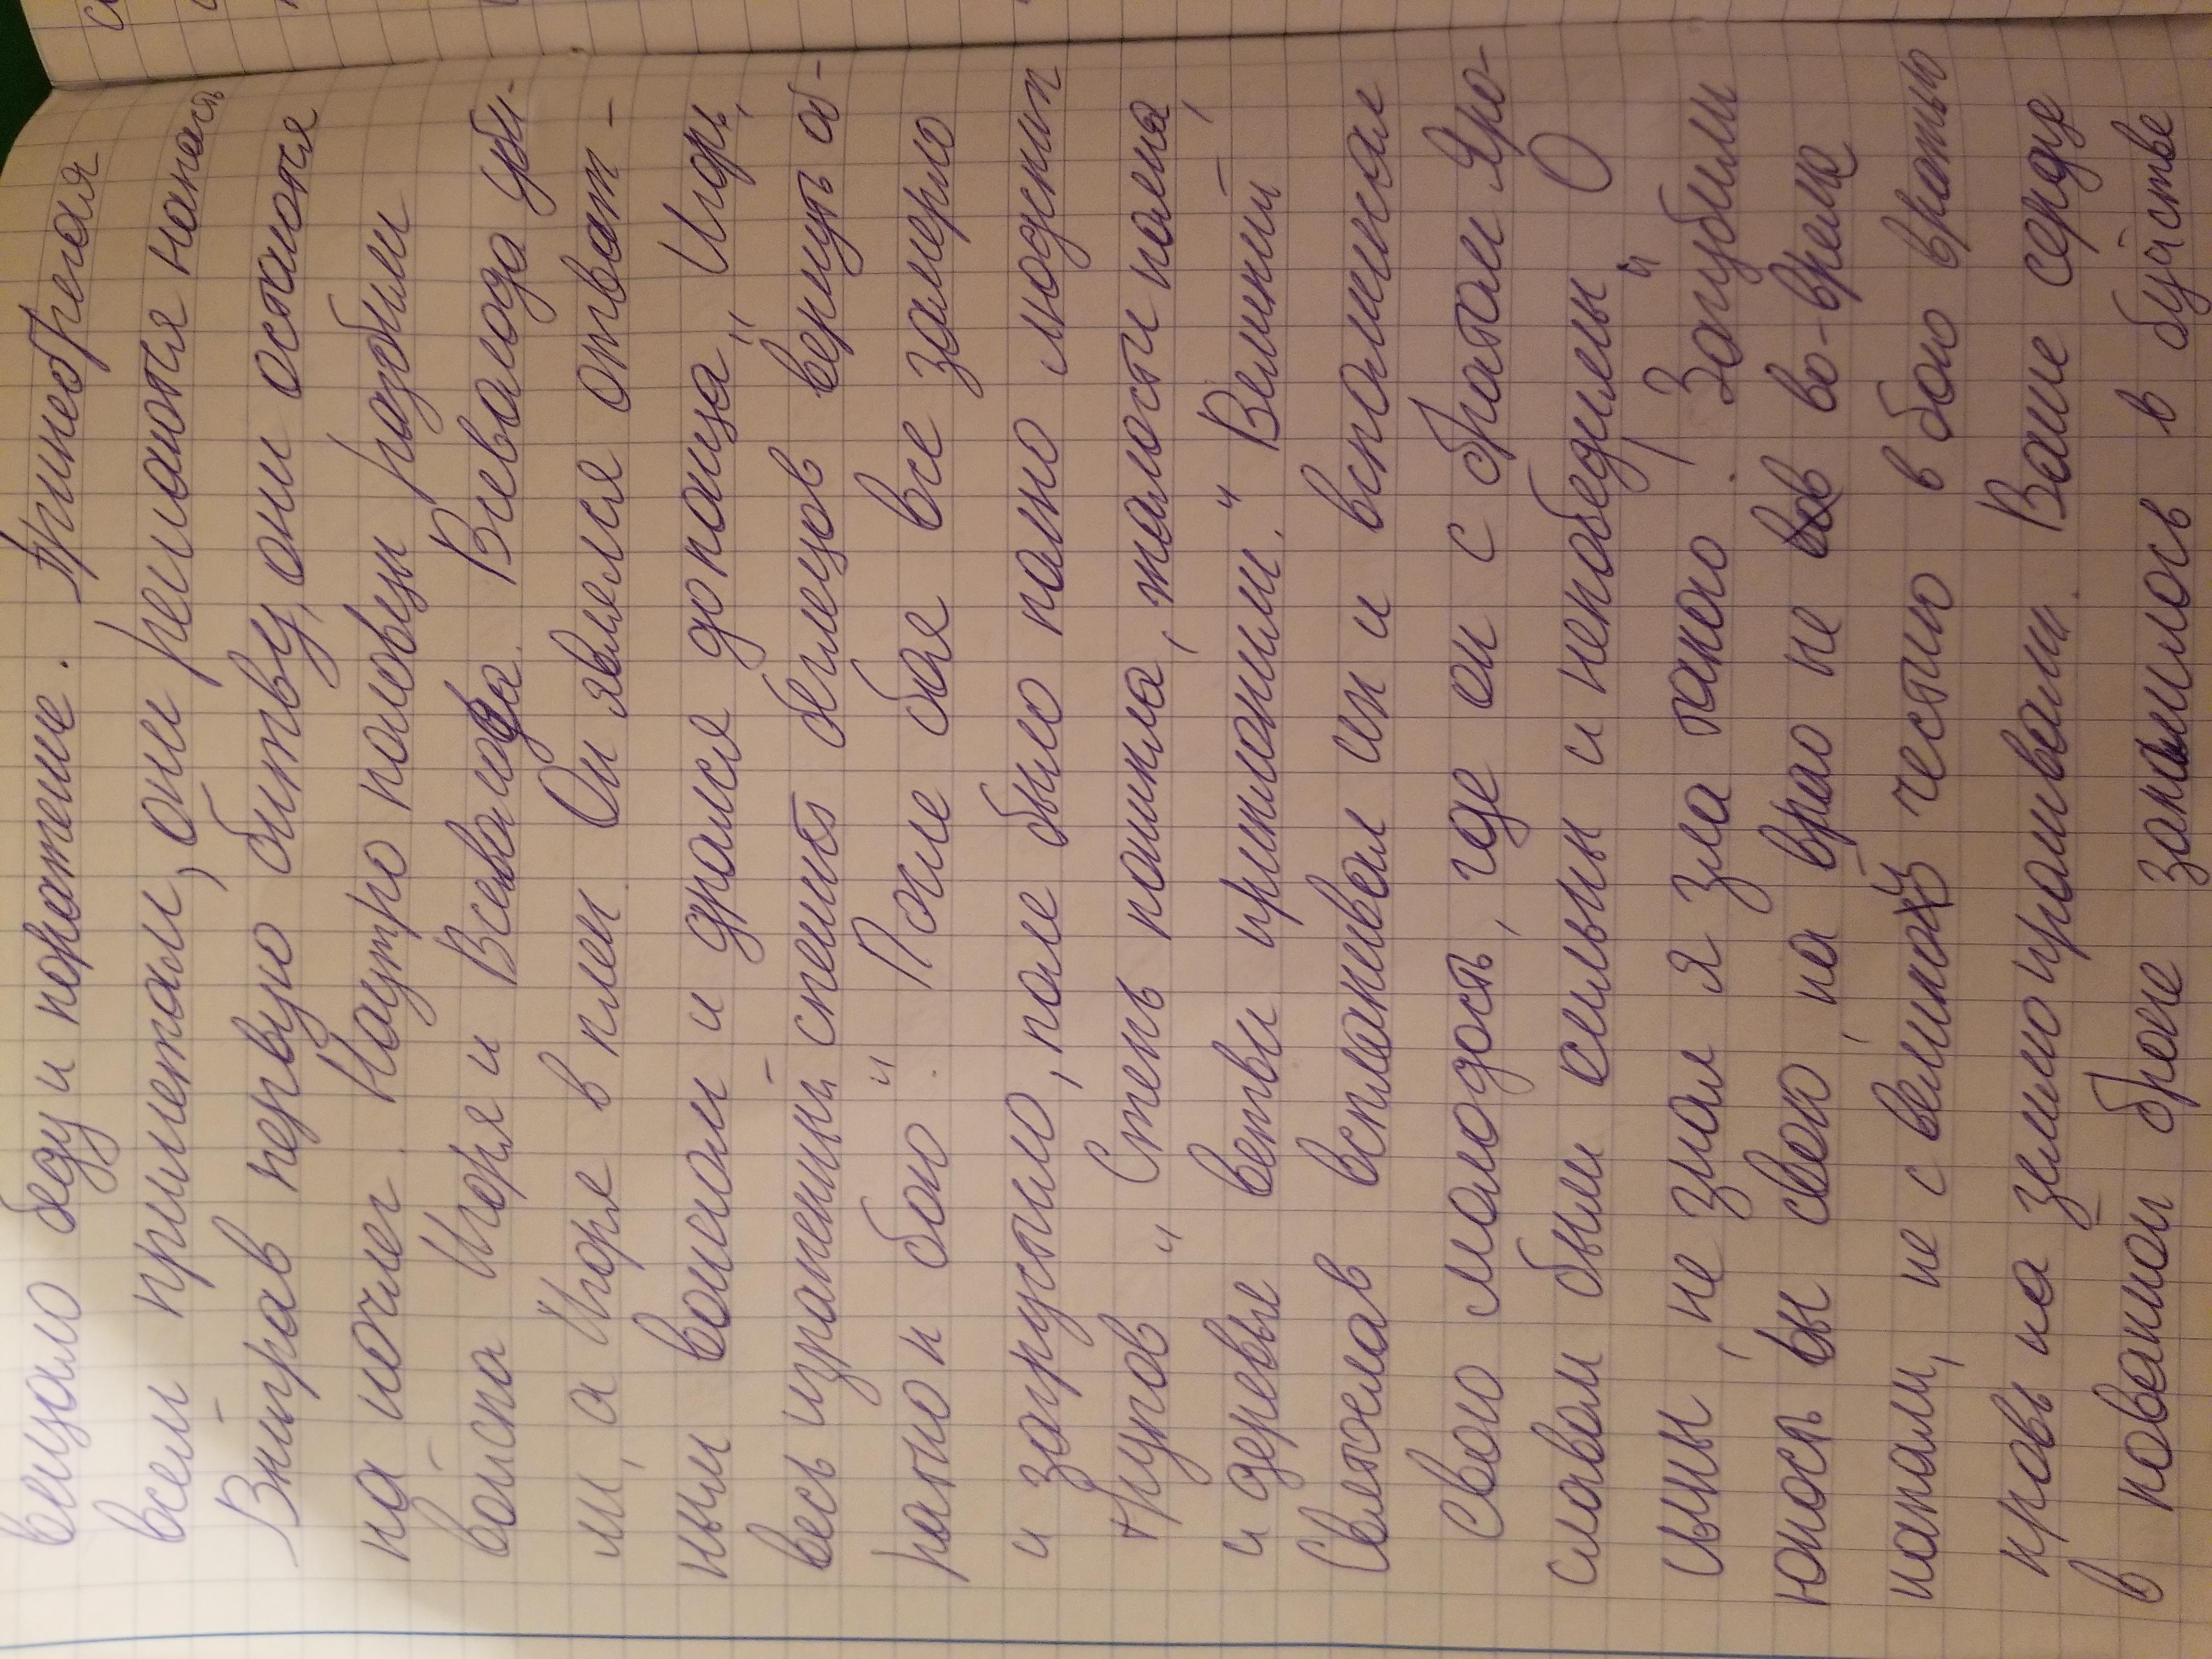 вещало беду и поражение. Принебрегая
всем приметам, они решаются напасть
Выйграв первую битву, они остаются
на ночлег. Наутро половцы разбили
войска Игоря и Всеволода. Всеволода уби-
ли, а Игоря в плен. Он являлся отват-
ным воином и дрался до конца „ Игорь,
весь израненный спешит беглецов вернуть об-
ратно к бою". После боя все замерло
и загрустило, поле было полно людских
трупов „ Степь поникла, жалости полна,
и деревья ветви приклонили." Великий
Святослав всплакивал сны и вспоминал
свою молодость, где он с братом Яро-
славом были сильны и непобедимы „ О
сыны, не знал я зла такого. Загубили
юность вы свою, на врага не во-время
напали, не с великой честью в бою вратью
кровь на землю проливали. Ваше сердце
в кованой броне закалилось в буйстве